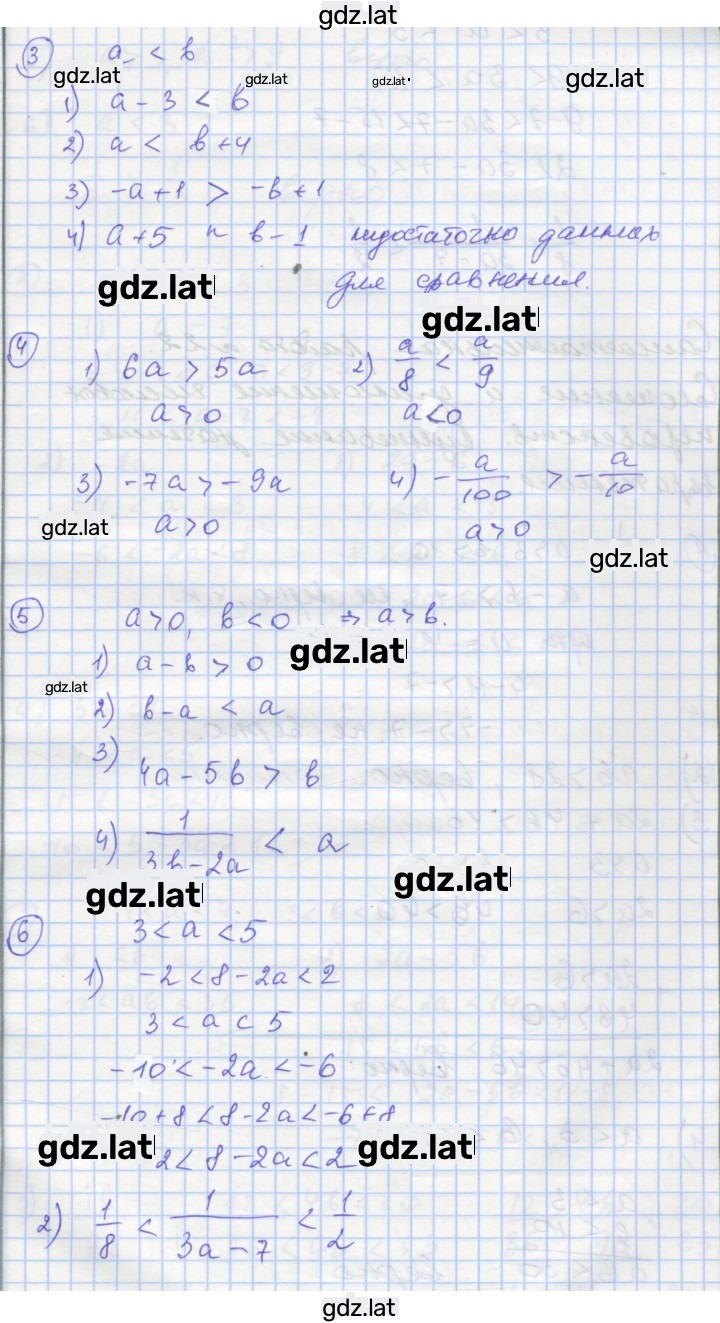 gdz.lat
3 a < b
gdz.lat gdz.lat gdz.lat gdz.lat
1) a - 3 < b
2) a < b + 4
3) -a + 1 > -b + 1
4) a + 5 и b - 1 недостаточно данных
для сравнения.
gdz.lat
gdz.lat
4 1) 6a > 5a 2) a/8 < a/9
a > 0 a < 0
3) -7a > -9a 4) -a/100 > -a/10
gdz.lat a > 0 a > 0
gdz.lat
5 a > 0, b < 0 ⇒ a > b.
1) a - b > 0 gdz.lat
gdz.lat
2) b - a < a
3) 4a - 5b > b
4) 1/(3b - 2a) < a
gdz.lat gdz.lat
6 3 < a < 5
1) -2 < 8 - 2a < 2
3 < a < 5
-10 < -2a < -6
-10 + 8 < 8 - 2a < -6 + 8
gdz.lat 2 < 8 - 2a < 2 gdz.lat
2) 1/8 < 1/(3a - 7) < 1/2
gdz.lat